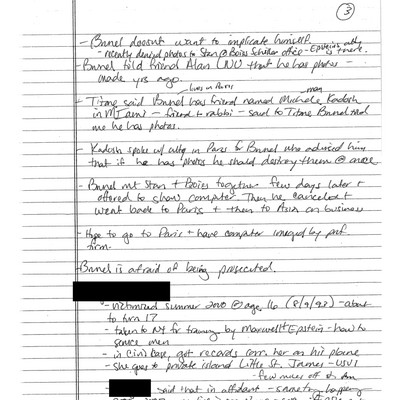 3
- Brunel doesn't want to implicate himself.
- recently denied photos to Stan @ Boies Schiller office - Epstein's atty were there.
- Brunel told friend Alan (LNU) that he has photos -
made yrs ago.
lives in Paris
man
- Titone said Brunel has friend named Michele Kadosh
in Miami - friend & rabbi - said to Titone Brunel told
me he has photos.
- Kadosh spoke w/ atty in Paris for Brunel who advised him
that if he has photos he should destroy them @ once
- Brunel mt Stan + Boies together few days later &
offered to show computer. Then he cancelled &
went back to Paris & then to Asia on business
- Hope to go to Paris & have computer imaged by pvt
firm.
- Brunel is afraid of being prosecuted.
- victimized summer 2000 @ age 16 (8/9/83) - about
to turn 17
- taken to NY for training by Maxwell & Epstein - how to
service men
- in Civil case, got records her on his plane
- she goes to private island Little St. James - USVI
- few miles off St.
- said that in affidavit -